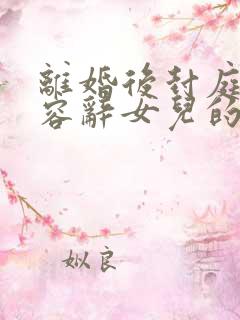 離婚後封庭
容辭女兒的
姒良